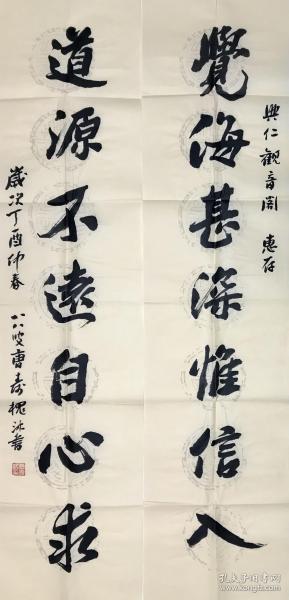 覺海甚深惟信入
興仁觀音閣 惠存
道源不遠自心求
歲次丁酉仲春
八八叟曹壽槐沐書
孔夫子旧书网